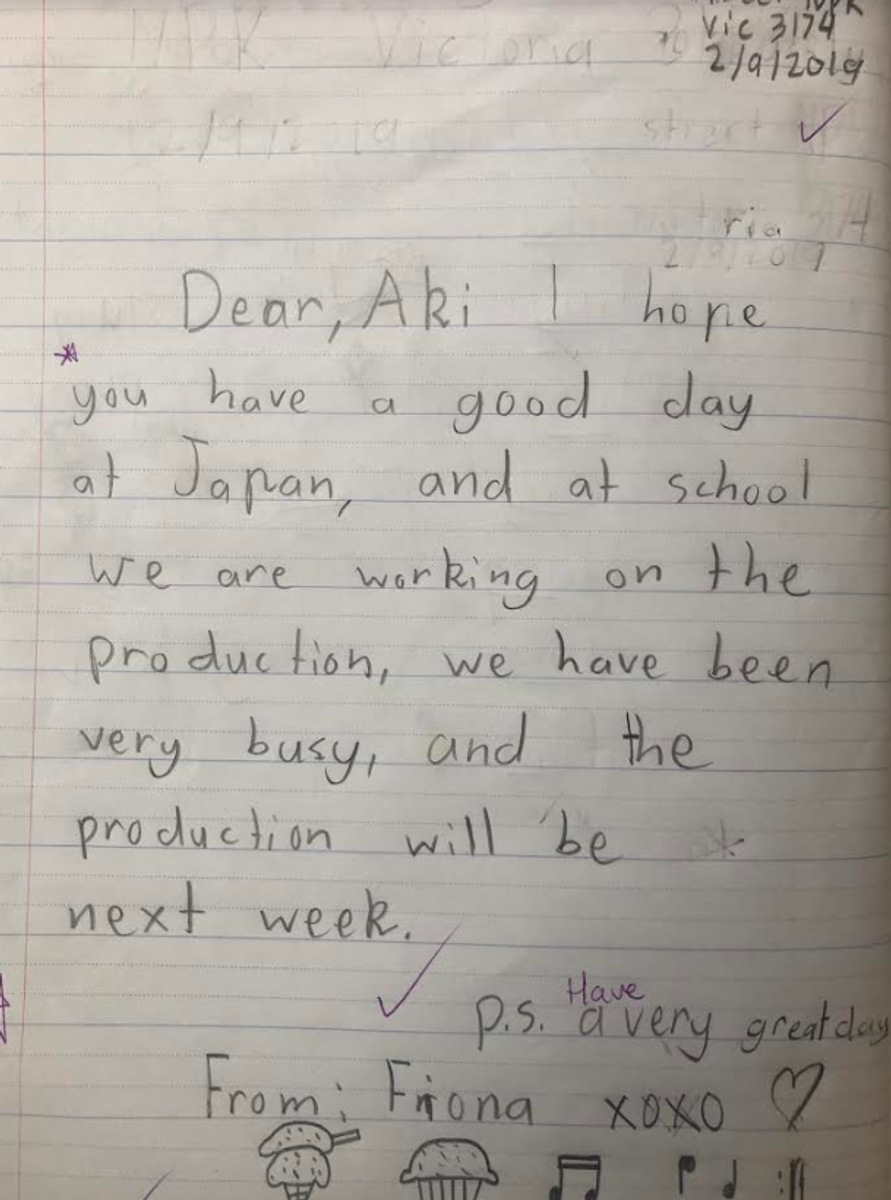 Vic 3174
2/9/2019
Dear, Aki I hope
* you have a good day
at Japan, and at school
we are working on the
production, we have been
very busy, and the
production will be
next week.
Have
p.s. a very great day
From: Fiona xoxo